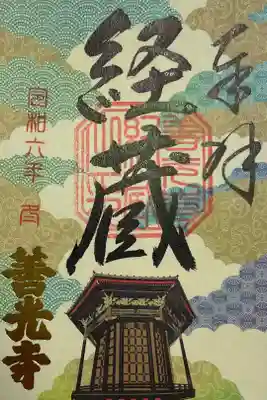 奉拝
経蔵
令和六年 吉
善光寺